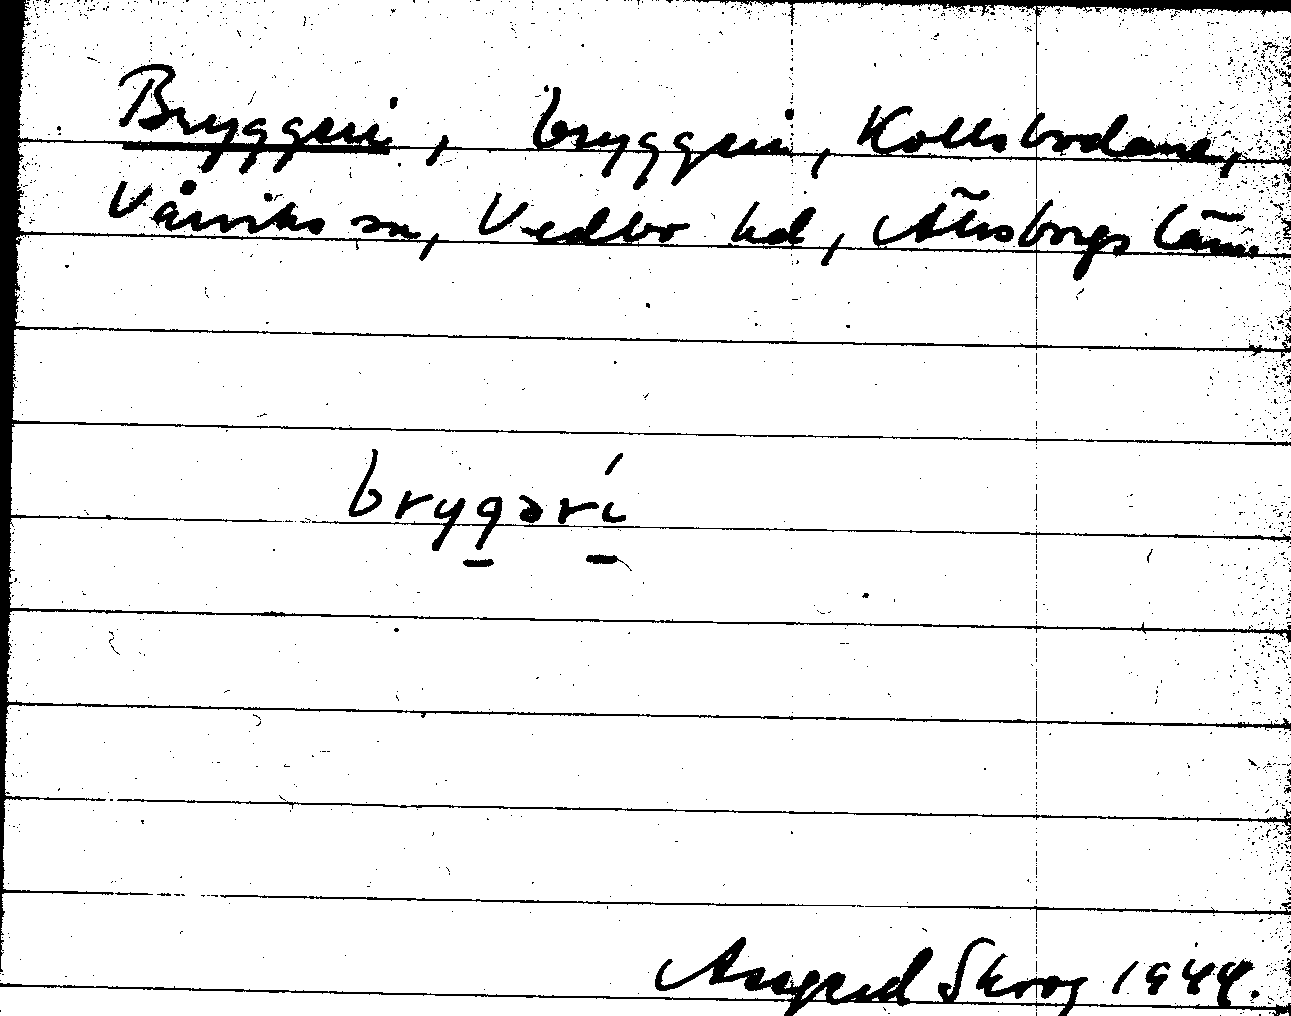 Bryggeri, bryggeri, Kollsbodane,
Vårviks sn, Vedbo hd, Älvsborgs län.
brygərí
Skoog 1944.